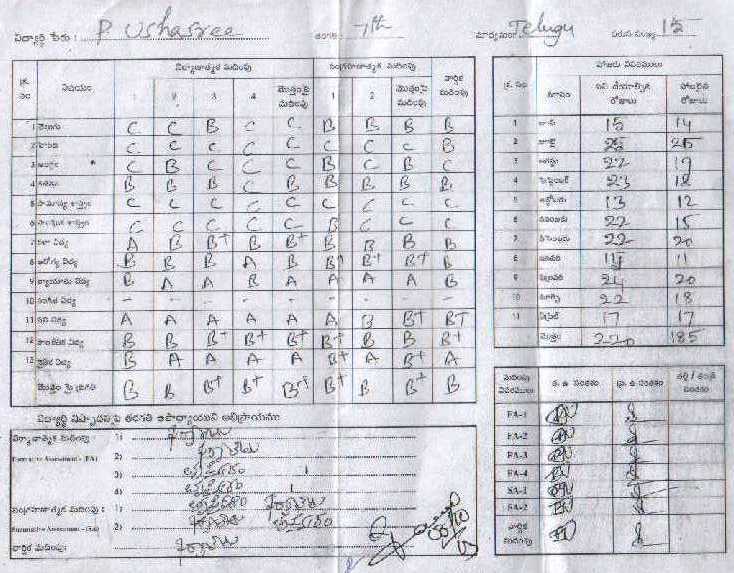 విద్యార్థి పేరు : P Ushasree తరగతి : 7th మాధ్యమం : Telugu వరుస సంఖ్య 15
క్ర. సం విషయం నిర్మాణాత్మక మదింపు సంగ్రహణాత్మక మదింపు వార్షిక మదింపు
1 2 3 4 మొత్తంపై మదింపు 1 2 మొత్తంపై మదింపు
1 తెలుగు C C B C C B B B B
2 హిందీ C C C C C C C C B
3 ఆంగ్లం C B C C C B C B C
4 గణితం B B B C B B B B B
5 సామాన్య శాస్త్రం C C C C C C C C C
6 సాంఘిక శాస్త్రం C C C C C B C C C
7 కళా విద్య A B B+ B B+ B B B B
8 ఆరోగ్య విద్య B B B A B B+ B+ B+ B
9 వ్యాయామ విద్య B A A B A A A A B
10 సంగీత విద్య - - - - - - - - -
11 పని విద్య A A A A A A B B+ B+
12 B B B+ B+ B+ B+ B B B+
13 నైతిక విద్య B A A A A B+ A B+ A
మొత్తం పై ప్రగతి B B B+ B+ B+ B+ B B+ B
హాజరు వివరములు
క్ర. సం మాసం పని చేయాల్సిన రోజులు హాజరైన రోజులు
1 జూన్ 15 14
2 జూలై 25 25
3 ఆగస్టు 22 19
4 సెప్టెంబర్ 23 18
5 అక్టోబరు 13 12
6 నవంబరు 22 15
7 డిసెంబరు 22 20
8 జనవరి 14 11
9 ఫిబ్రవరి 24 20
10 మార్చి 22 18
11 ఏప్రిల్ 17 17
మొత్తం 220 185
మదింపు వివరములు క. ఉ సంతకం ప్ర. ఉ సంతకం తల్లి / తండ్రి సంతకం
FA-1
FA-2
FA-3
FA-4
SA-1
SA-2
వార్షిక మదింపు
విద్యార్థి నిష్పాదనపై తరగతి ఉపాధ్యాయుని అభిప్రాయము
నిర్మాణాత్మక మదింపు 1)
Formative Assessment - (FA) 2)
3)
4)
సంగ్రహణాత్మక మదింపు : 1)
Summative Assessment - (SA) 2)
వార్షిక మదింపు: